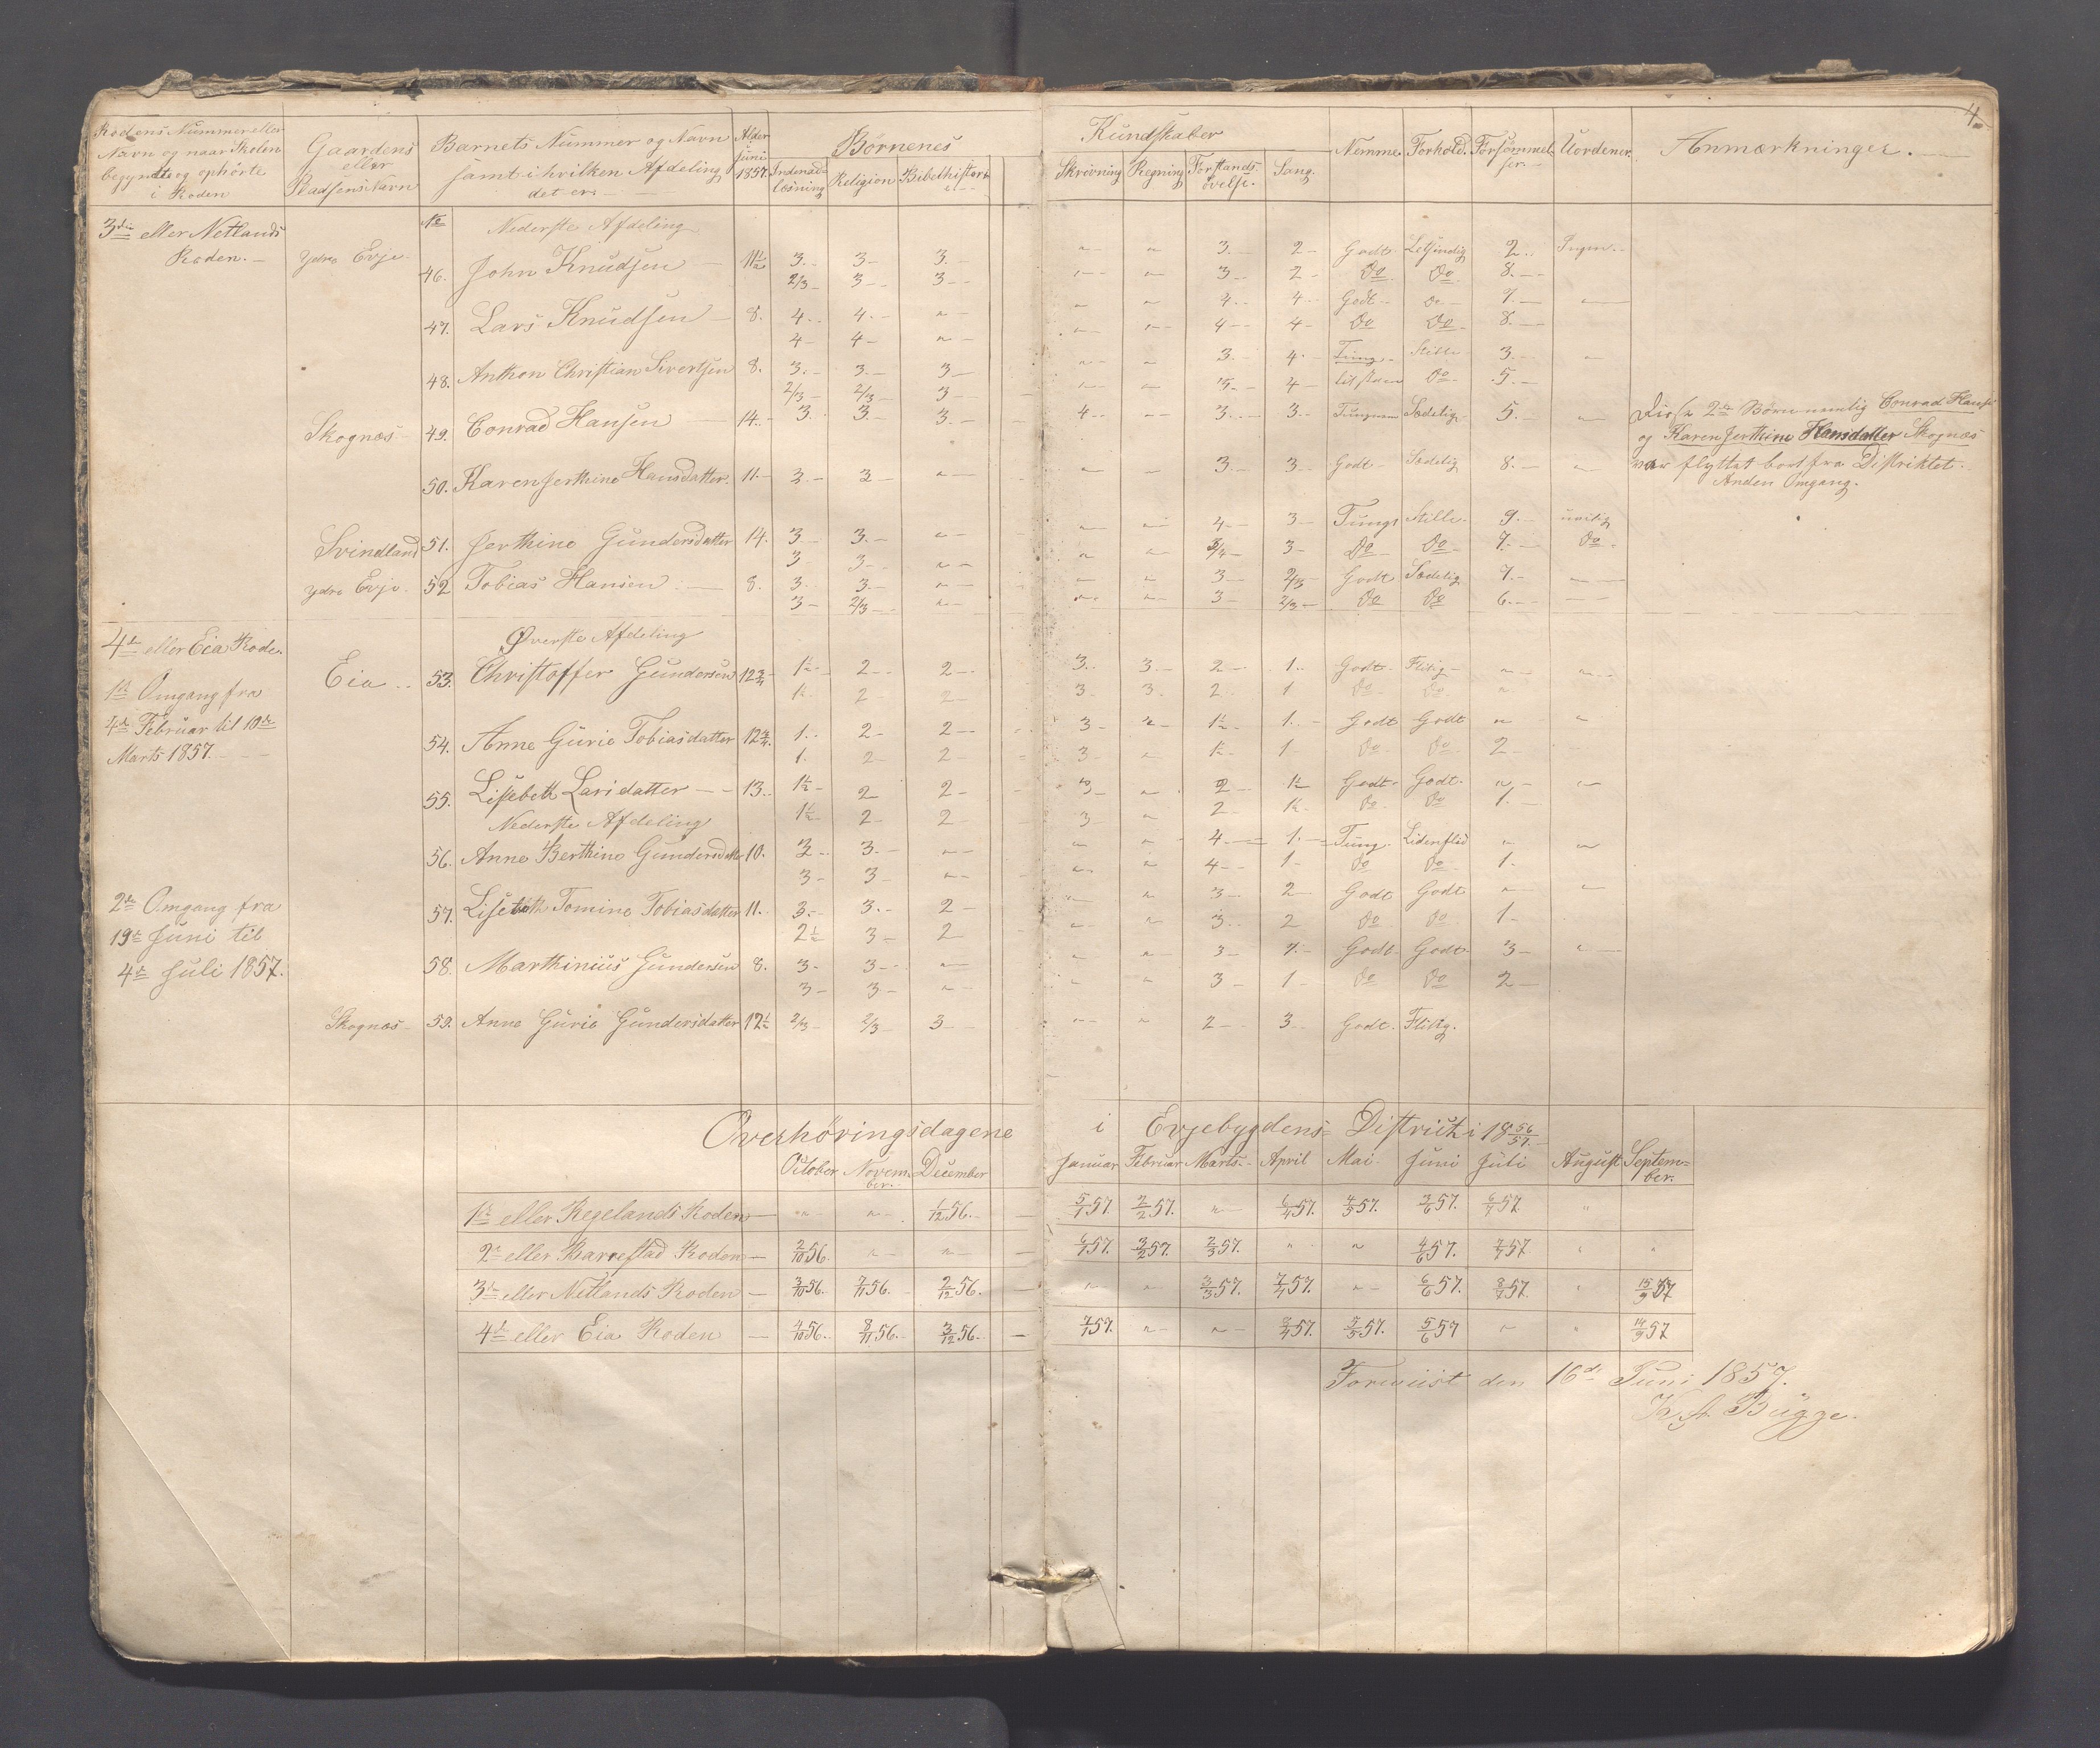 4.
Rodens Nummer eller Navn og naar Skolen begyndte og ophørte i Roden | Gaardens eller Pladsens Navn | Barnets Nummer og Navn samt i hvilken Afdeling det er | Alder i Juni 1857. | Børnenes Kundskaber | Nemme | Forhold. | Forsømmelser | Uordener | Anmærkninger.
Indenadlæsning | Religion | Bibelhistorie | Skrivning | Regning | Forstandsøvelse. | Sang.
3die eller Netlands Roden. | No Nederste Afdeling
Ydre Evje | 46. John Knudsen | 11½ | 3. | 3 | 3. | " | " | 3. | 2 | Godt | Letsindig | 2. | Ingen
2/3 | 3 | 3 | " | " | 3 | 2 | Do | Do | 8.
47. Lars Knudsen | 8. | 4. | 4. | " | " | " | 4 | 4 | Godt | Do | 7.
4 | 4 | " | " | " | 4 | 4 | Do | Do | 8.
48. Anthon Christian Sivertsen | 8. | 3. | 3. | 3 | " | " | 3. | 4. | Tung | Stille | 3. | "
2/3 | 2/3 | 3 | " | " | 4 | Do | 5.
Skognæs | 49. Conrad Hansen | 14. | 3. | 3 | 3. | 4 | " | 3. | 3 | Tungnem | Sædelig | 5. | " | Disse 2de Børn nemlig Conrad Hansen
og Karen Jerthine Hansdatter Skognæs
50. Karen Jerthine Hansdatter. | 11. | 3. | 3 | " | " | " | 3. | 3 | Godt | Sædelig | 8. | " | var flyttet bort fra Distriktet.
Anden Omgang.
Svindland | 51. Jerthine Gundersdatter | 14. | 3 | 3. | " | " | " | 4 | 3 | Tungt | Stille | 9. | urolig
3 | 3 | " | " | " | 3/4 | 3 | Do | Do | 7. | Do
Ydre Evje | 52 Tobias Hansen | 8. | 3. | 3. | " | " | " | 3 | 2/3 | Godt | Sædelig | 7.
3 | 2/3 | " | " | " | 3 | 2/3 | Do | Do | 6.
4de eller Eia Rode. | Øverste Afdeling
1ste Omgang fra 4de Februar til 10de Marts 1857.
Eia | 53. Christoffer Gundersen | 12¾ | 1½ | 2 | 2 | 3. | 3. | 2 | 1. | Godt | Flitig | " | "
1½ | 2 | 2 | 3 | 3. | 2 | 1 | Do | Do | "
54. Anne Gurie Tobiasdatter | 1. | 2 | 2 | 3 | " | 1½ | 1. | Godt | Godt | " | "
1. | 2 | 2 | 3 | " | 1½ | 1 | Do | Do | 2
55. Lisebeth Larsdatter | 13. | 1½ | 2 | 2 | 3 | " | 2 | 1½ | Godt | Godt | " | "
Nederste Afdeling | 1½ | 2 | 2 | 3 | " | 2 | 1½ | Do | Do | 1.
56. Anne Berthine Gundersdatter | 10. | 3 | 3. | " | " | " | 4 | 1. | Tung | Lidenflid | " | "
3 | 3 | " | " | " | 4 | 1 | Do | Do | 1.
2den Omgang fra 19de Juni til 4de Juli 1857.
57. Lisebeth Tomine Tobiasdatter | 11. | 3. | 3. | 2 | " | " | 3 | 2 | Godt | Godt | " | "
2½ | 3 | 2 | " | " | 3. | 2 | Do | Do | 1
58. Marthinius Gundersen | 8. | 3 | 3 | " | " | " | 3 | 1. | Godt | Godt | 3 | "
3 | 3 | " | " | " | 3 | 1 | Do | Do | 2
Skognæs | 59. Anne Gurie Gundersdatter | 12½ | 2/3 | 2/3 | 3 | " | " | 2 | 3 | Godt. | Flittig.
Overhøringsdagene i Evjebygdens District i 18 56/57.
October | November | December | Januar | Februar | Marts | April | Mai | Juni | Juli | August | September.
1ste eller Kegelands Roden | " | " | 1/12 56. | 5/1 57. | 2/2 57. | " | 6/4 57. | 4/5 57. | 3/6 57. | 6/7 57. | "
2den eller Barrestad Roden | 2/10 56. | " | " | 6/1 57. | 3/2 57. | 2/3 57. | " | " | 4/6 57. | 7/7 57 | " | "
3die eller Netlands Roden | 3/10 56. | 7/11 56. | 2/12 56. | " | " | 3/3 57. | 7/4 57. | " | 6/6 57. | 8/7 57. | " | 15/9 57
4de eller Eia Roden | 4/10 56. | 8/11 56. | 3/12 56. | 7/1 57. | " | " | 8/4 57. | 5/5 57. | 5/6 57 | " | " | 14/9 57
Foreviist den 16de Juni 1857.
Bugge.